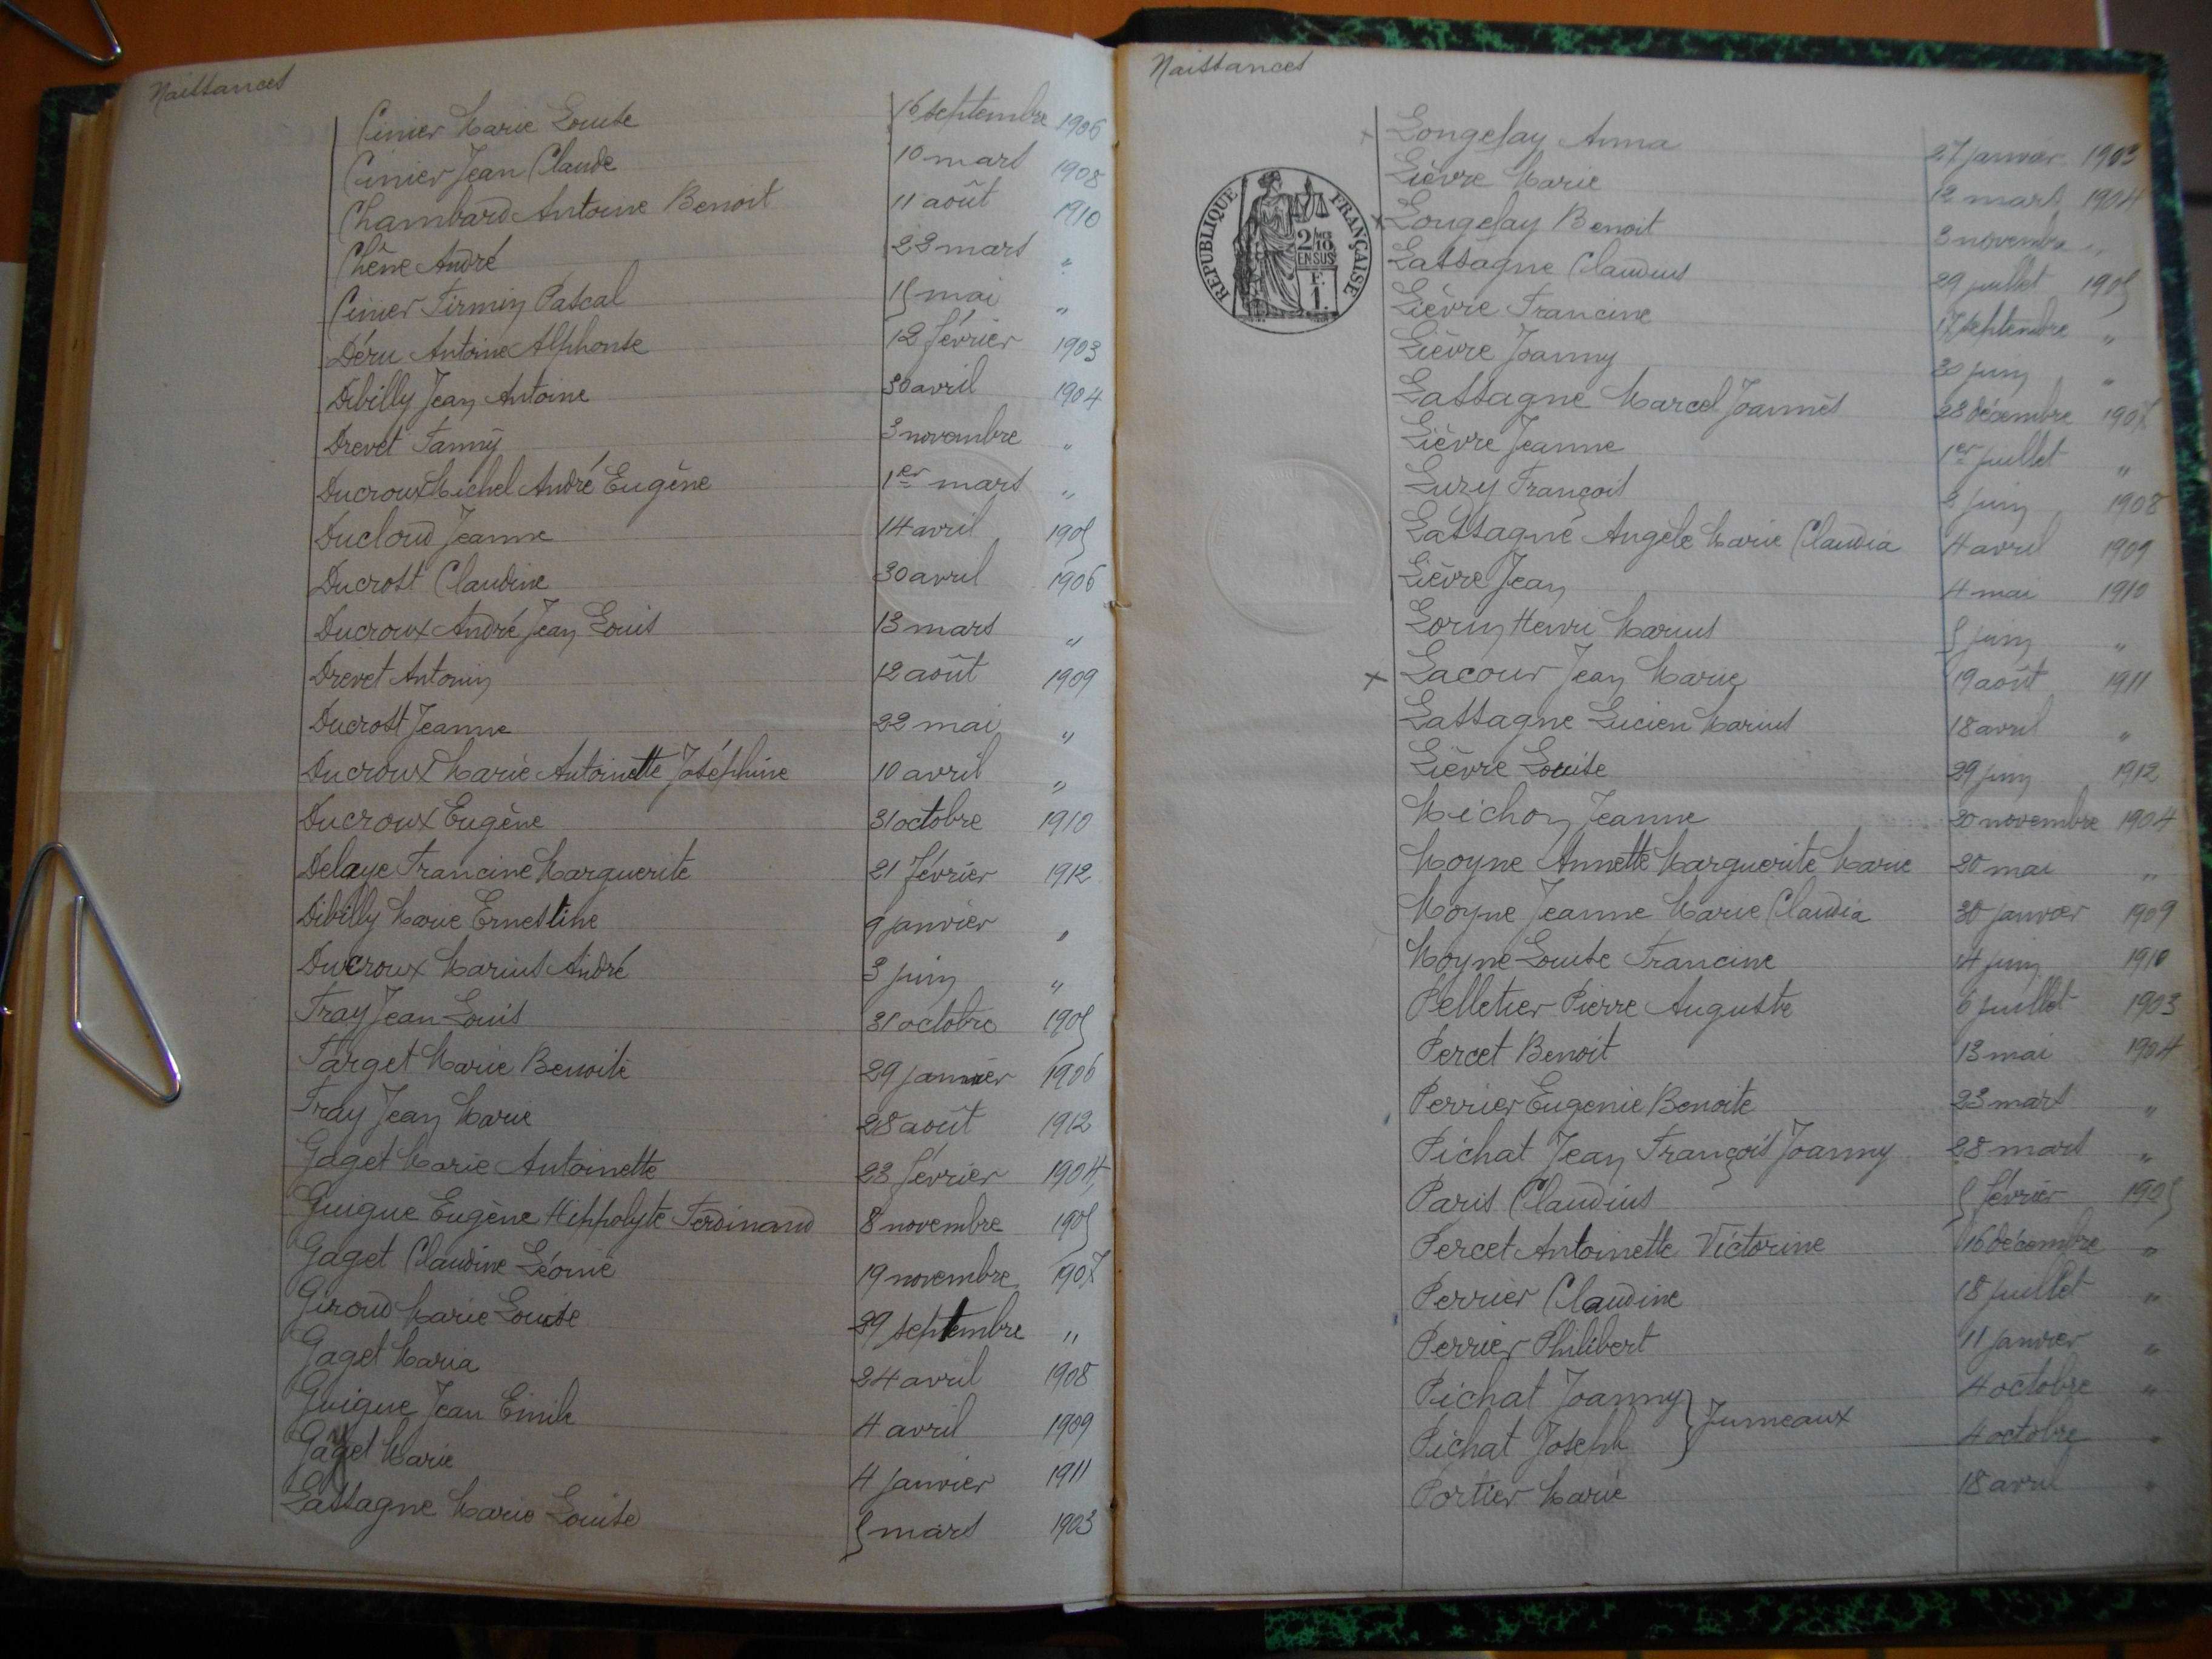 Naissances
Cinier Marie Louise 16 septembre 1906
Cinier Jean Claude 10 mars 1908
Chambard Antoine Benoit 11 août 1910
Chêne André 23 mars "
Cinier Firmin Pascal 15 mai "
Déru Antoine Alphonse 12 février 1903
Dibilly Jean Antoine 30 avril 1904
Drevet Fanny 3 novembre "
Ducroux Michel André Eugène 1er mars "
Ducloud Jeanne 14 avril 1905
Ducrost Claudine 30 avril 1906
Ducroux André Jean Louis 13 mars "
Drevet Antonin 12 août 1909
Ducrost Jeanne 22 mai "
Ducroux Marie Antoinette Joséphine 10 avril "
Ducroux Eugène 31 octobre 1910
Delaye Francine Marguerite 21 février 1912
Dibilly Marie Ernestine 9 janvier "
Ducroux Marius André 3 juin "
Fray Jean Louis 31 octobre 1905
Farget Marie Benoite 29 janvier 1906
Fray Jean Marie 28 août 1912
Gaget Marie Antoinette 23 février 1904
Guigue Eugène Hippolyte Ferdinand 8 novembre 1905
Gaget Claudine Léonie 19 novembre 1907
Giroud Marie Louise 29 septembre "
Gaget Maria 24 avril 1908
Guigue Jean Emile 4 avril 1909
Gaget Marie 4 janvier 1911
Lassagne Marie Louise 5 mars 1903
Naissances
RÉPUBLIQUE FRANÇAISE
2/10
EN SUS
F.
1.
x Longefay Anna 27 janvier 1903
Lièvre Marie 12 mars 1904
x Longefay Benoit 3 novembre "
Lassagne Claudius 29 juillet 1905
Lièvre Francine 17 septembre "
Lièvre Joanny 30 juin "
Lassagne Marcel Joannès 28 décembre 1907
Lièvre Jeanne 1er juillet "
Luzy François 2 juin 1908
Lassagne Angèle Marie Claudia 4 avril 1909
Lièvre Jean 4 mai 1910
Lorin Henri Marius 5 juin "
x Lacour Jean Marie 19 août 1911
Lassagne Lucien Marius 18 avril "
Lièvre Louise 29 juin 1912
Michon Jeanne 20 novembre 1904
Moyne Annette Marguerite Marie 20 mai "
Moyne Jeanne Marie Claudia 30 janvier 1909
Moyne Louise Francine 14 juin 1910
Pelletier Pierre Auguste 6 juillet 1903
Percet Benoit 13 mai 1904
Perrier Eugenie Benoite 23 mars "
Pichat Jean François Joanny 28 mars "
Paris Claudius 5 février 1905
Percet Antoinette Victorine 16 décembre "
Perrier Claudine 18 juillet "
Perrier Philibert 11 janvier "
Pichat Joanny 4 octobre "
Jumeaux
Pichat Joseph 4 octobre "
Portier Marie 18 avril "